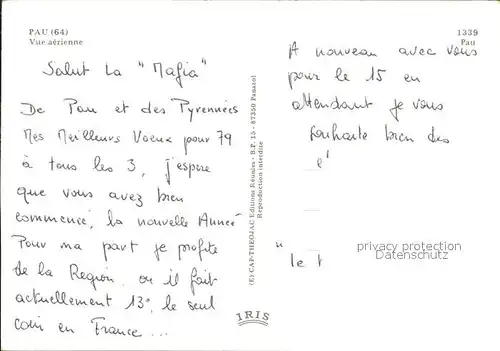 PAU (64)
Vue aérienne
Salut la "Mafia"
De Pau et des Pyrennées
Mes Meilleurs Voeux pour 79
à tous les 3, j'espere
que vous avez bien
commencé, la nouvelle Année
Pour ma part je profite
de la Region, ou il fait
actuellement 13°, le seul
coin en France...
(E) CAP-THEOJAC Editions Réunies - B.P. 13 - 87350 Panazol
Reproduction interdite
IRIS
1339
Pau
A nouveau avec vous
pour le 15 en
attendant je vous
souhaite bien des
e'
"le
privacy protection
Datenschutz